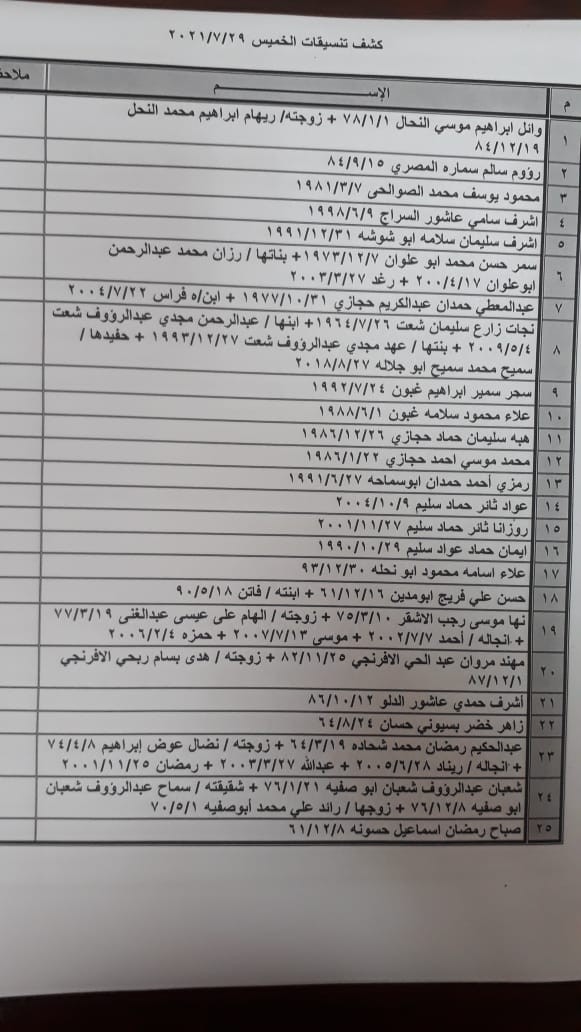 كشف تنسيقات الخميس ٢٠٢١/٧/٢٩
م الإســـــــم ملاحظ
١ وائل ابراهيم موسي النحال ٧٨/١/١ + زوجته/ ريهام ابراهيم محمد النحل
٨٤/١٢/١٩
٢ رؤوم سالم سماره المصري ٨٤/٩/١٥
٣ محمود يوسف محمد الصوالحى ١٩٨١/٣/٧
٤ اشرف سامي عاشور السراج ١٩٩٨/٦/٩
٥ اشرف سليمان سلامه ابو شوشه ١٩٩١/١٢/٣١
٦ سمر حسن محمد ابو علوان ١٩٧٣/١٢/٧+ بناتها / رزان محمد عبدالرحمن
ابوعلوان ٢٠٠٠/٤/١٧ + رغد ٢٠٠٣/٣/٢٧
٧ عبدالمعطي حمدان عبدالكريم حجازي ١٩٧٧/١٠/٣١ + ابن/ه فراس ٢٠٠٤/٧/٢٢
٨ نجات زارع سليمان شعت ١٩٦٤/٧/٢٦+ ابنها / عبدالرحمن مجدي عبدالرؤوف شعت
٢٠٠٩/٥/٤ + بنتها / عهد مجدي عبدالرؤوف شعت ١٩٩٣/١٢/٢٧ + حفيدها /
سميح محمد سميح ابو جلاله ٢٠١٨/٨/٢٧
٩ سحر سمير ابراهيم غبون ١٩٩٢/٧/٢٤
١٠ علاء محمود سلامه غبون ١٩٨٨/٦/١
١١ هبه سليمان حماد حجازي ١٩٨٦/١٢/٢٦
١٢ محمد موسي احمد حجازي ١٩٨٦/١/٢٢
١٣ رمزي أحمد حمدان ابوسماحه ١٩٩١/٦/٢٧
١٤ عواد ثائر حماد سليم ٢٠٠٤/١٠/٩
١٥ روزانا ثائر حماد سليم ٢٠٠١/١١/٢٧
١٦ ايمان حماد عواد سليم ١٩٩٠/١٠/٢٩
١٧ علاء اسامه محمود ابو نحله ٩٣/١٢/٣٠
١٨ حسن علي فريج ابومدين ٦١/١٢/١٦ + ابنته / فاتن ٩٠/٥/١٨
١٩ نها موسى رجب الاشقر ٧٥/٣/١٠ + زوجته / الهام على عيسى عبدالغنى ٧٧/٣/١٩
+ انجاله / أحمد ٢٠٠٢/٧/٧ + موسى ٢٠٠٧/٧/١٣ + حمزه ٢٠٠٦/٢/٤
٢٠ مهند مروان عبد الحي الافرنجي ٨٢/١١/٢٥ + زوجته / هدى بسام ربحي الافرنجي
٨٧/١٢/١
٢١ أشرف حمدي عاشور الدلو ٨٦/١٠/١٢
٢٢ زاهر خضر بسيوني حسان ٦٤/٨/٢٤
٢٣ عبدالحكيم رمضان محمد شحاده ٦٤/٣/١٩ + زوجته / نضال عوض إبراهيم ٧٤/٤/٨
+ انجاله / ريناد ٢٠٠٥/٦/٢٨ + عبدالله ٢٠٠٣/٣/٢٧ + رمضان ٢٠٠١/١١/٢٥
٢٤ شعبان عبدالرؤوف شعبان ابو صفيه ٧٦/١/٢١ + شقيقته / سماح عبدالرؤوف شعبان
ابو صفيه ٧٦/١٢/٨ + زوجها / رائد علي محمد أبوصفيه ٧٠/٥/١
٢٥ صباح رمضان اسماعيل حسونه ٦١/١٢/٨